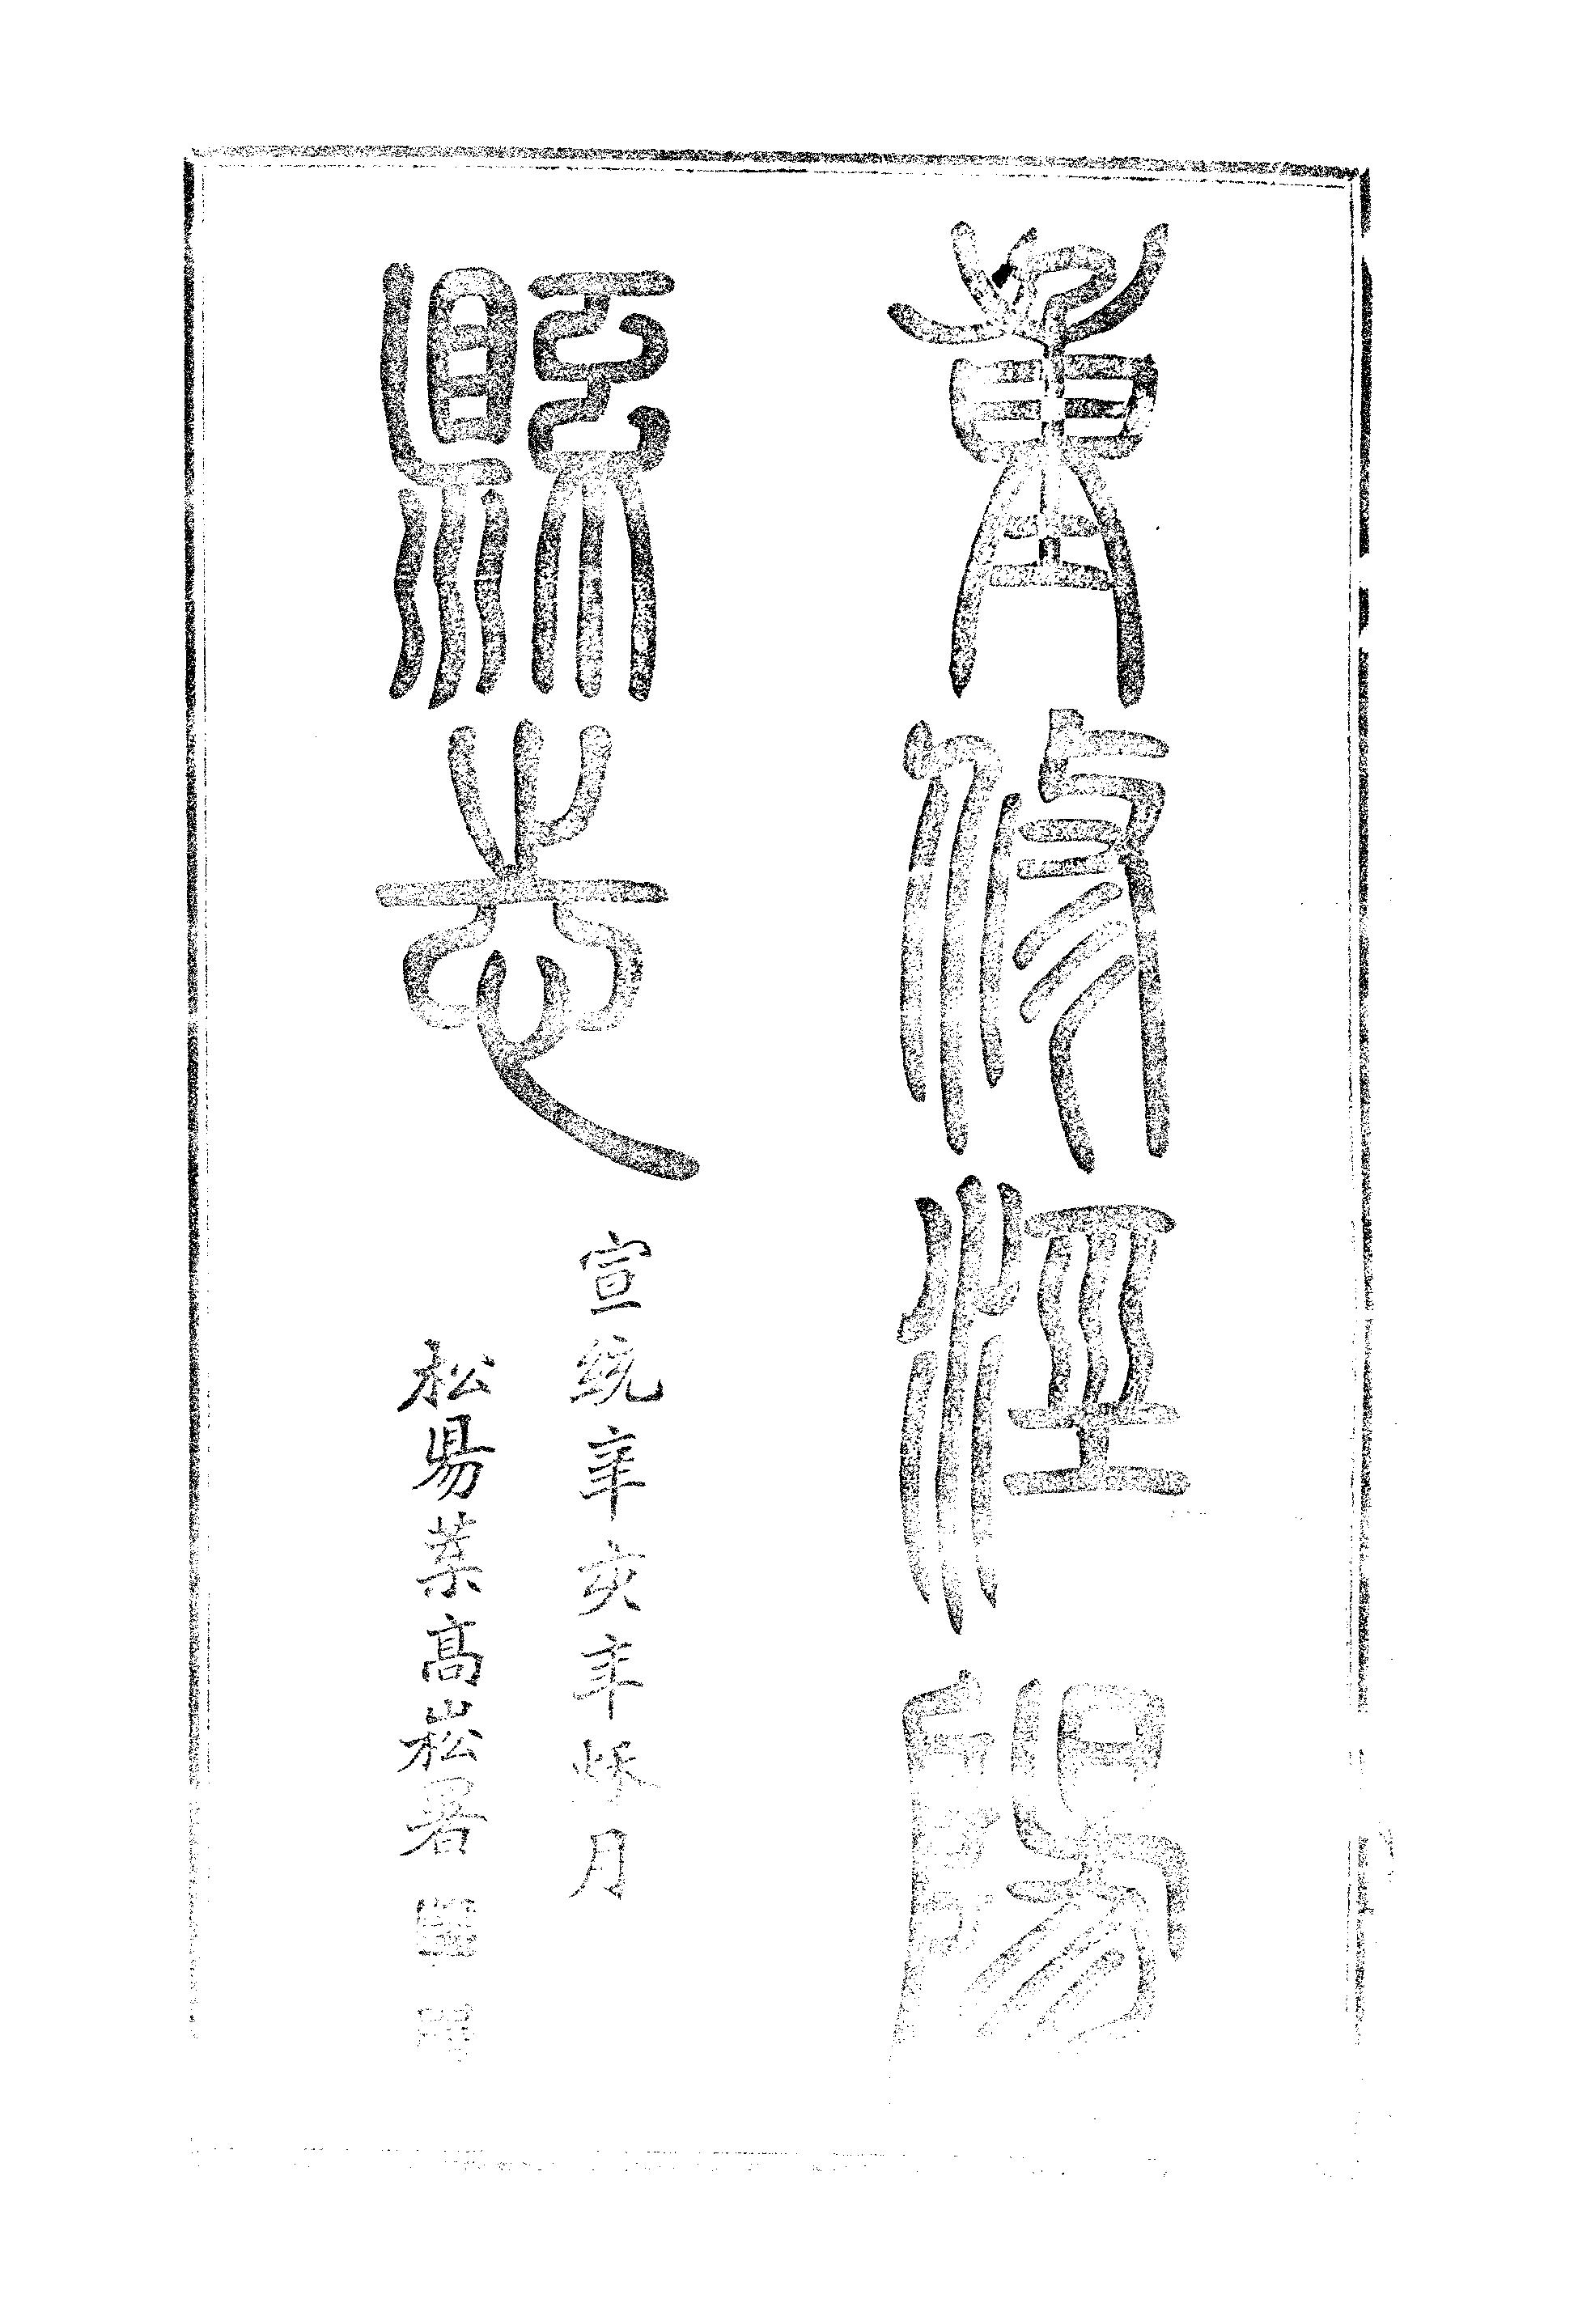 重修涇陽
縣志
宣統辛亥年秌月
松昜葉高崧署